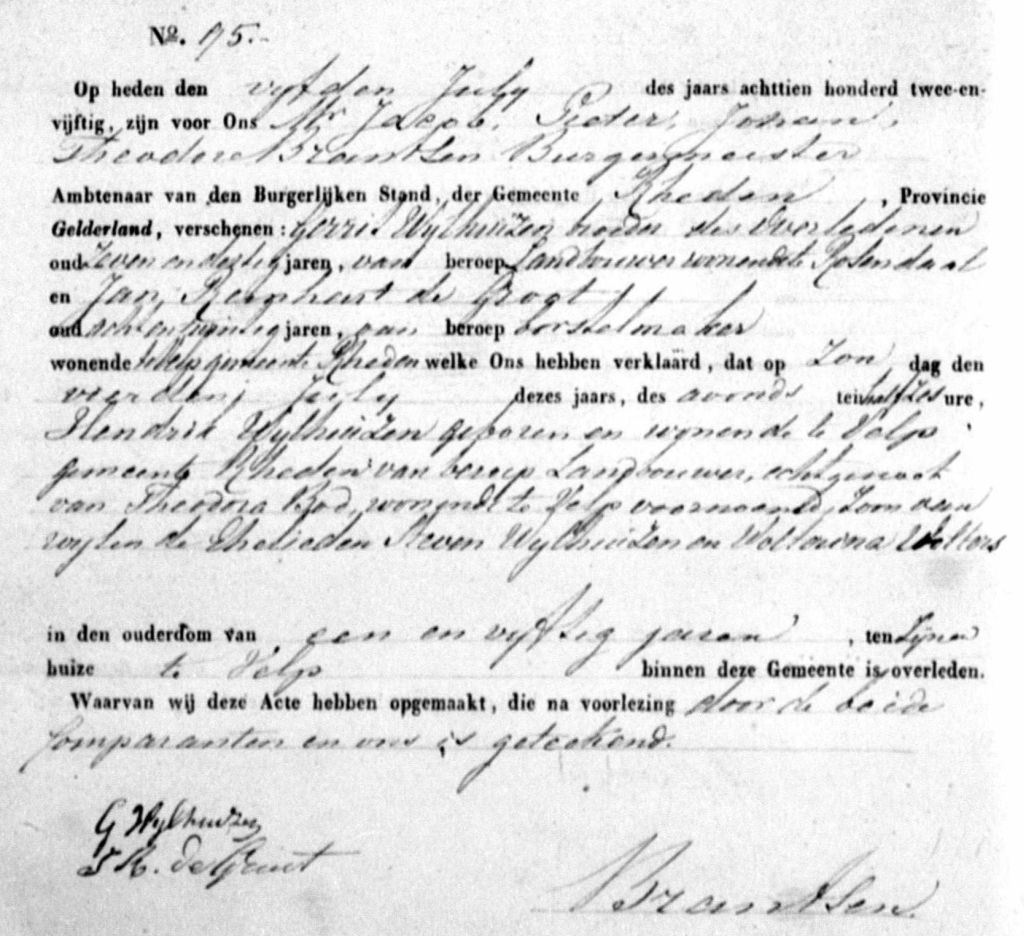 No. 75.-
Op heden den vijfden July des jaars achttien honderd twee-en-
vijftig, zijn voor Ons Mr Jacob, Pieter, Johan,
Theodore Brantsen Burgermeister
Ambtenaar van den Burgerlijken Stand, der Gemeente Rheden, Provincie
Gelderland, verschenen: Gerrit Wylhuizen broeder des Overledenen
oud Zeven en dertig jaren, van beroep Landbouwer wonende te Rosendaal
en Jan de
oud acht en twintig jaren, van beroep borstelmaker
wonende te Velp gemeente Rheden welke Ons hebben verklaard, dat op Zon dag den
vierden July dezes jaars, des avonds ten half zes ure,
Hendrik Wylhuizen geboren en wonende te Velp
gemeente Rheden van beroep Landbouwer, echtgenoot
van Theodora Bod, wonende te Velp voornoemd, Zoon van
wylen de Ehelieden Steven Wylhuizen en Wolters
in den ouderdom van een en vyftig jaren, ten Zynen
huize te Velp binnen deze Gemeente is overleden.
Waarvan wij deze Acte hebben opgemaakt, die na voorlezing door de beide
Comparanten en ons is geteekend.
G Wylhuizen
de
Brantsen.